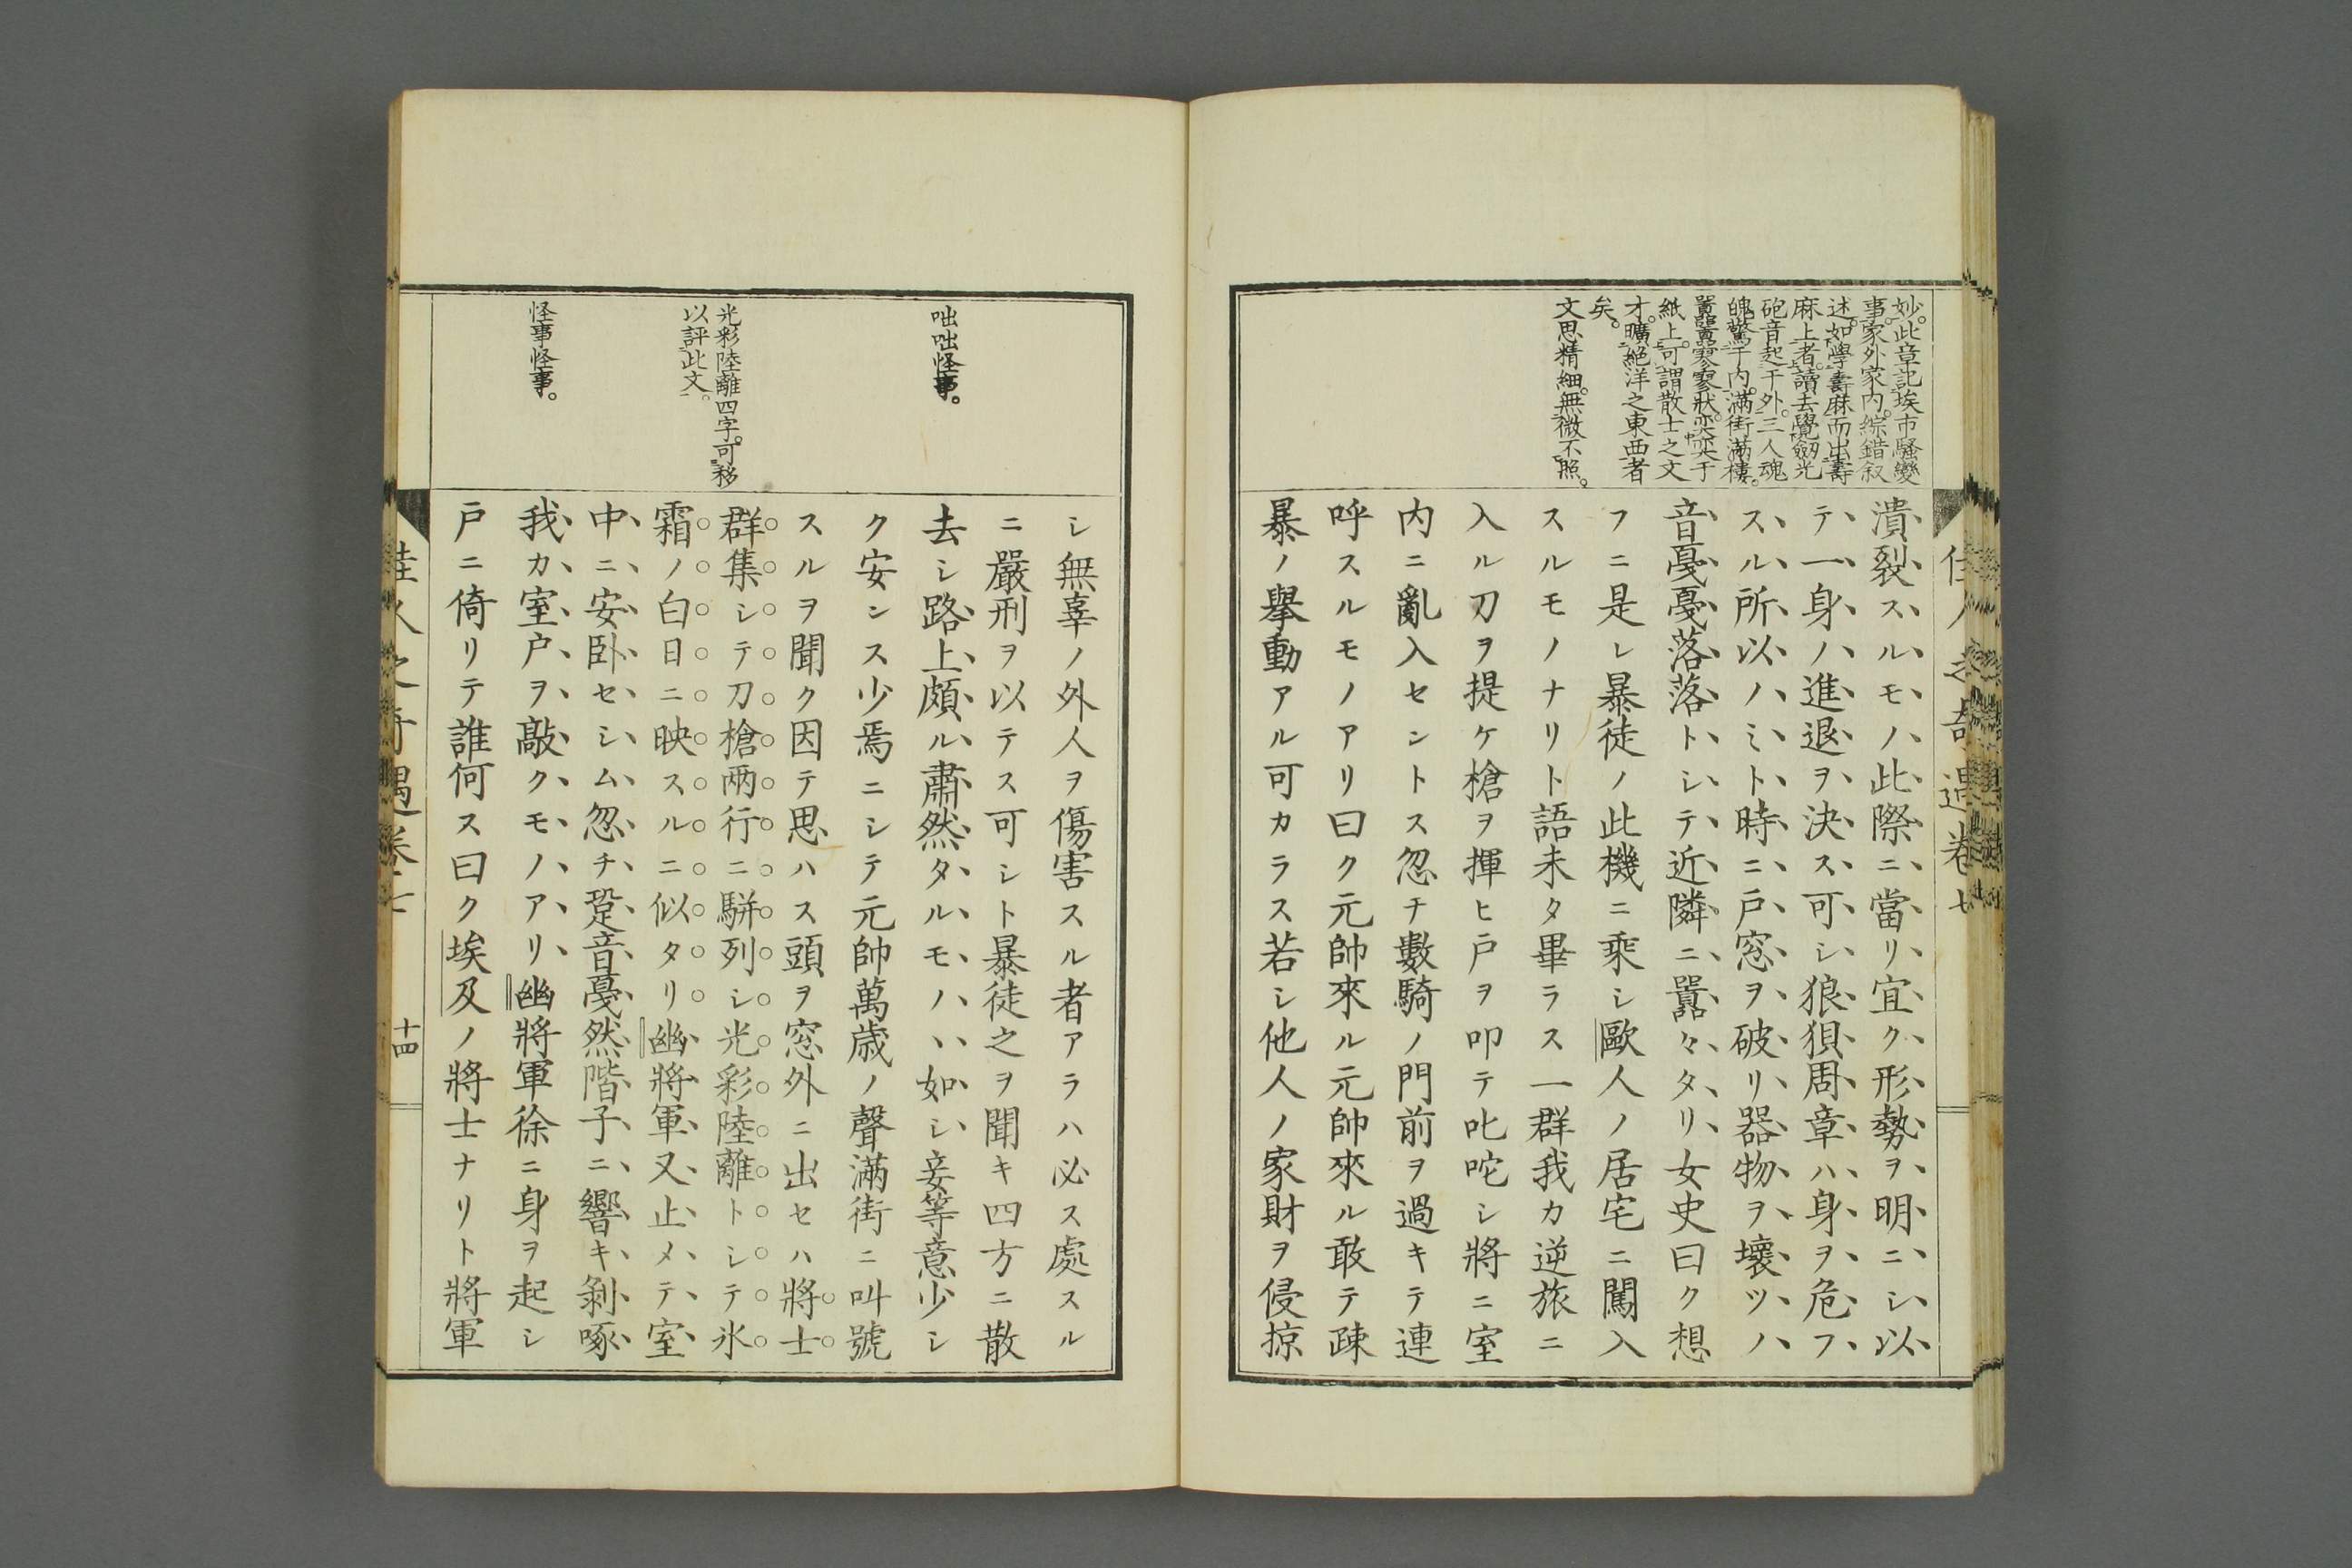 妙。此章記埃市騷變
事。家外家內。綜錯叙
述。如學壽麻而出壽
麻上者。讀去覺劔光
砲音起于外。三人魂
魄驚于內。滿街滿樓。
囂囂寥寥狀。奕奕于
紙上。可謂散士之文
才。曠絕洋之東西者
矣。
文思精細。無微不照。
潰裂スルモノ此際ニ當リ宜ク形勢ヲ明ニシ以
テ一身ノ進退ヲ決ス可シ狼狽周章ハ身ヲ危フ
スル所以ノミト時ニ戸窓ヲ破リ器物ヲ壞ツノ
音戞戞落落トシテ近隣ニ囂々タリ女史曰ク想
フニ是レ暴徒ノ此機ニ乘シ歐人ノ居宅ニ闖入
スルモノナリト語未タ畢ラス一群我カ逆旅ニ
入ル刀ヲ提ケ槍ヲ揮ヒ戸ヲ叩テ叱咤シ將ニ室
內ニ亂入セントス忽チ數騎ノ門前ヲ過キテ連
呼スルモノアリ曰ク元帥來ル元帥來ル敢テ疎
暴ノ擧動アル可カラス若シ他人ノ家財ヲ侵掠
佳人之奇遇卷七
咄咄怪事。
光彩陸離四字。可移
以評此文。
怪事怪事。
シ無辜ノ外人ヲ傷害スル者アラハ必ス處スル
ニ嚴刑ヲ以テス可シト暴徒之ヲ聞キ四方ニ散
去シ路上頗ル肅然タルモノヽ如シ妾等意少シ
ク安ンス少焉ニシテ元帥萬歳ノ聲滿街ニ叫號
スルヲ聞ク因テ思ハス頭ヲ窓外ニ出セハ將士
群集シテ刀槍兩行ニ駢列シ光彩陸離トシテ氷
霜ノ白日ニ映スルニ似タリ幽將軍又止メテ室
中ニ安臥セシム忽チ跫音戞然階子ニ響キ剝啄
我カ室戸ヲ敲クモノアリ幽將軍徐ニ身ヲ起シ
戸ニ倚リテ誰何ス曰ク埃及ノ將士ナリト將軍
佳人之奇遇卷七
十四